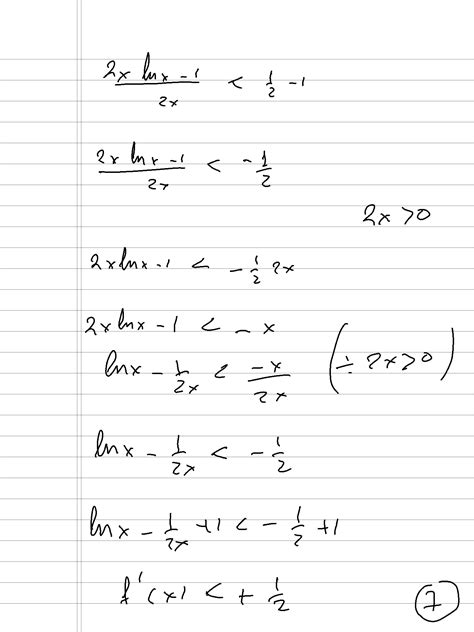 (2x ln x - 1)/2x < 1/2 - 1
(2x ln x - 1)/2x < - 1/2
2x > 0
2x ln x - 1 < - 1/2 2x
2x ln x - 1 < - x
ln x - 1/2x < -x/2x (÷ 2x > 0)
ln x - 1/2x < - 1/2
ln x - 1/2x + 1 < - 1/2 + 1
f'(x) < + 1/2
7